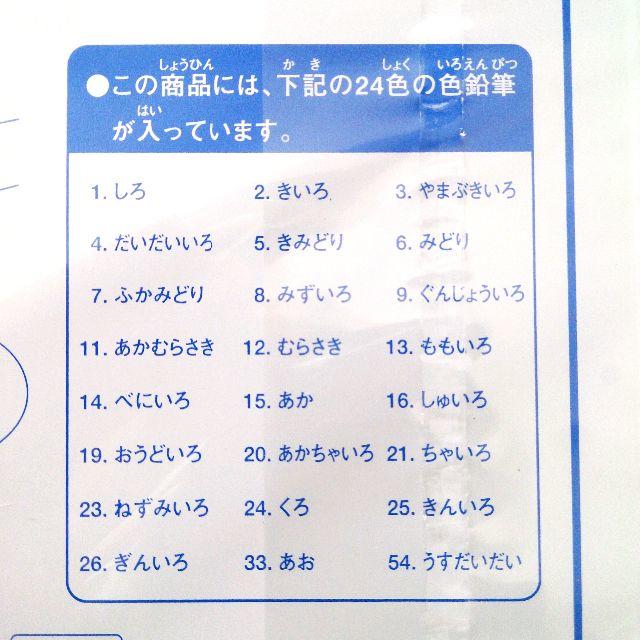 しょうひん か き しょく いろえんぴつ
●この商品には、下記の24色の色鉛筆
はい
が入っています。
1. しろ 2. きいろ 3. やまぶきいろ
4. だいだいいろ 5. きみどり 6. みどり
7. ふかみどり 8. みずいろ 9. ぐんじょういろ
11. あかむらさき 12. むらさき 13. ももいろ
14. べにいろ 15. あか 16. しゅいろ
19. おうどいろ 20. あかちゃいろ 21. ちゃいろ
23. ねずみいろ 24. くろ 25. きんいろ
26. ぎんいろ 33. あお 54. うすだいだい